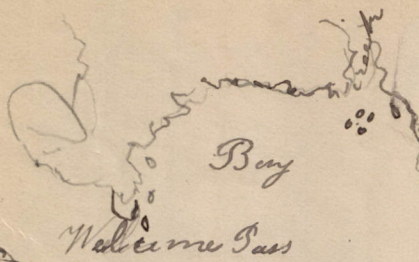 Bay
Welcome Pass